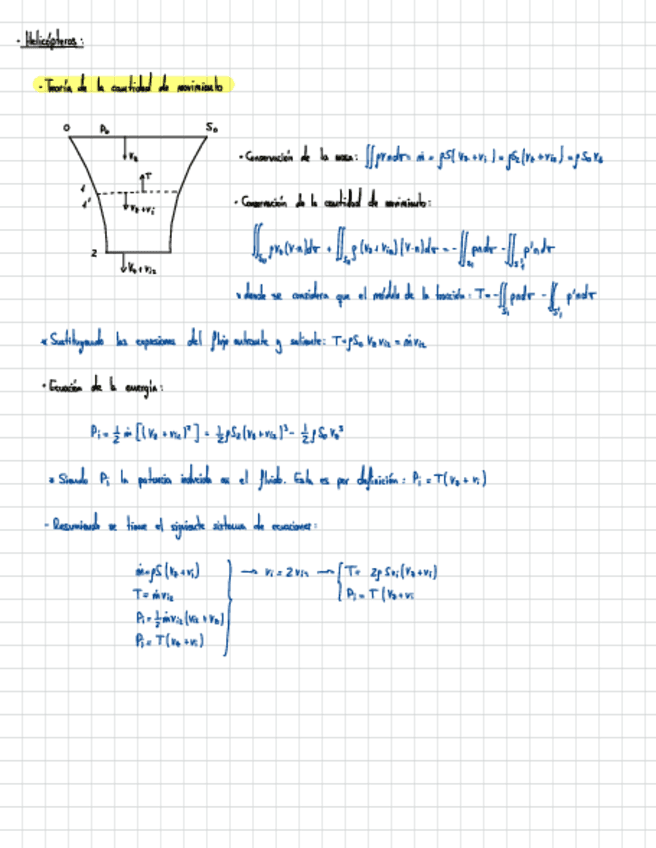 · Helicópteros:
- Teoría de la cantidad de movimiento
0 P₀ S₀
V₀
T
1
1'
V₀+Vᵢ
2
V₀+Vᵢ₂
· Conservación de la masa: ∬ρvndσ = ṁ = ρS(V₀+Vᵢ) = ρS₂(V₀+Vᵢ₂) = ρS₀V₀
· Conservación de la cantidad de movimiento:
∬ ρV₀(V·n)dσ + ∬ ρ(V₀+Vᵢ₂)(V·n)dσ = -∬ pndσ - ∬ p'ndσ
donde se considera que el módulo de la tracción: T = -∬ pndσ - ∬ p'ndσ
* Sustituyendo las expresiones del flujo entrante y saliente: T=ρS₀V₀Vᵢ₂ = ṁVᵢ₂
· Ecuación de la energía:
Pᵢ = ½ ṁ [(V₀+Vᵢ₂)²] = ½ρS₂(V₀+Vᵢ₂)³ - ½ρS₀V₀³
* Siendo Pᵢ la potencia inducida en el fluido. Esta es por definición: Pᵢ = T(V₀+Vᵢ)
- Resumiendo se tiene el siguiente sistema de ecuaciones:
ṁ=ρS(V₀+Vᵢ)
T= ṁVᵢ₂
Pᵢ= ½ṁVᵢ₂(Vᵢ₂+V₀)
Pᵢ= T(V₀+Vᵢ)
→ Vᵢ = 2Vᵢ₂ →
T= 2ρSVᵢ(V₀+Vᵢ)
Pᵢ= T(V₀+Vᵢ